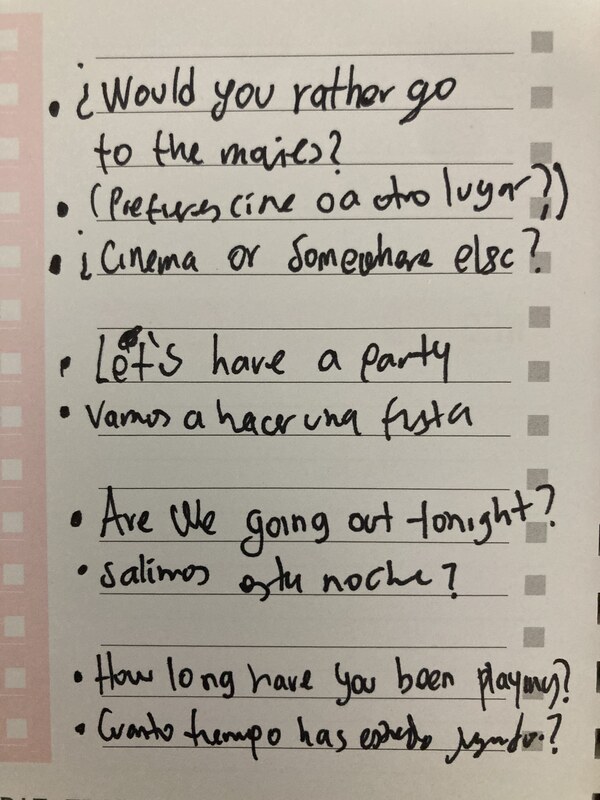 • ¿Would you rather go
to the movies?
• (Prefieres cine o a otro lugar?)
• ¿Cinema or Somewhere else?
• Let's have a party
• Vamos a hacer una fiesta
• Are We going out tonight?
• Salimos esta noche?
• How long have you been playing?
• Cuanto tiempo has estado jugando?